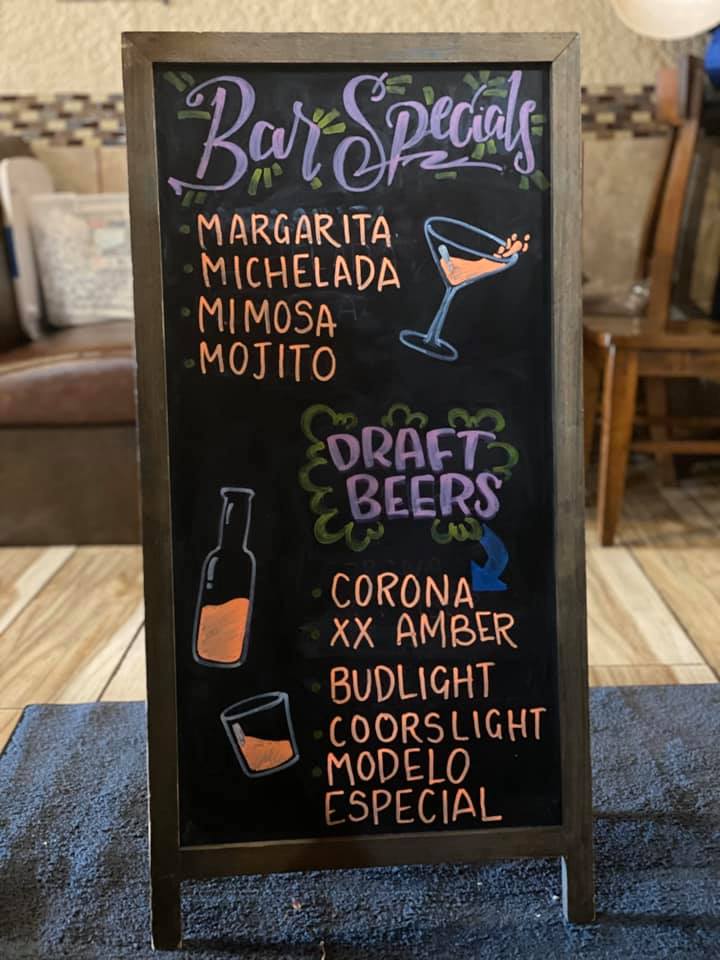 Bar Specials
MARGARITA
MICHELADA
MIMOSA
MOJITO
DRAFT
BEERS
CORONA
XX AMBER
BUDLIGHT
COORSLIGHT
MODELO
ESPECIAL